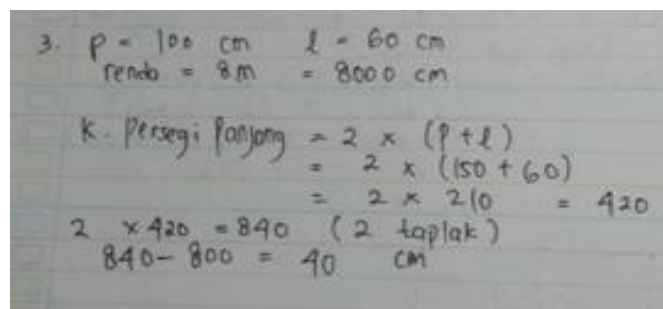 3. p = 100 cm l = 60 cm
renda = 8m = 8000 cm
K. Persegi Panjang = 2 x (p + l)
= 2 x (150 + 60)
= 2 x 210 = 420
2 x 420 = 840 (2 taplak)
840 - 800 = 40 cm